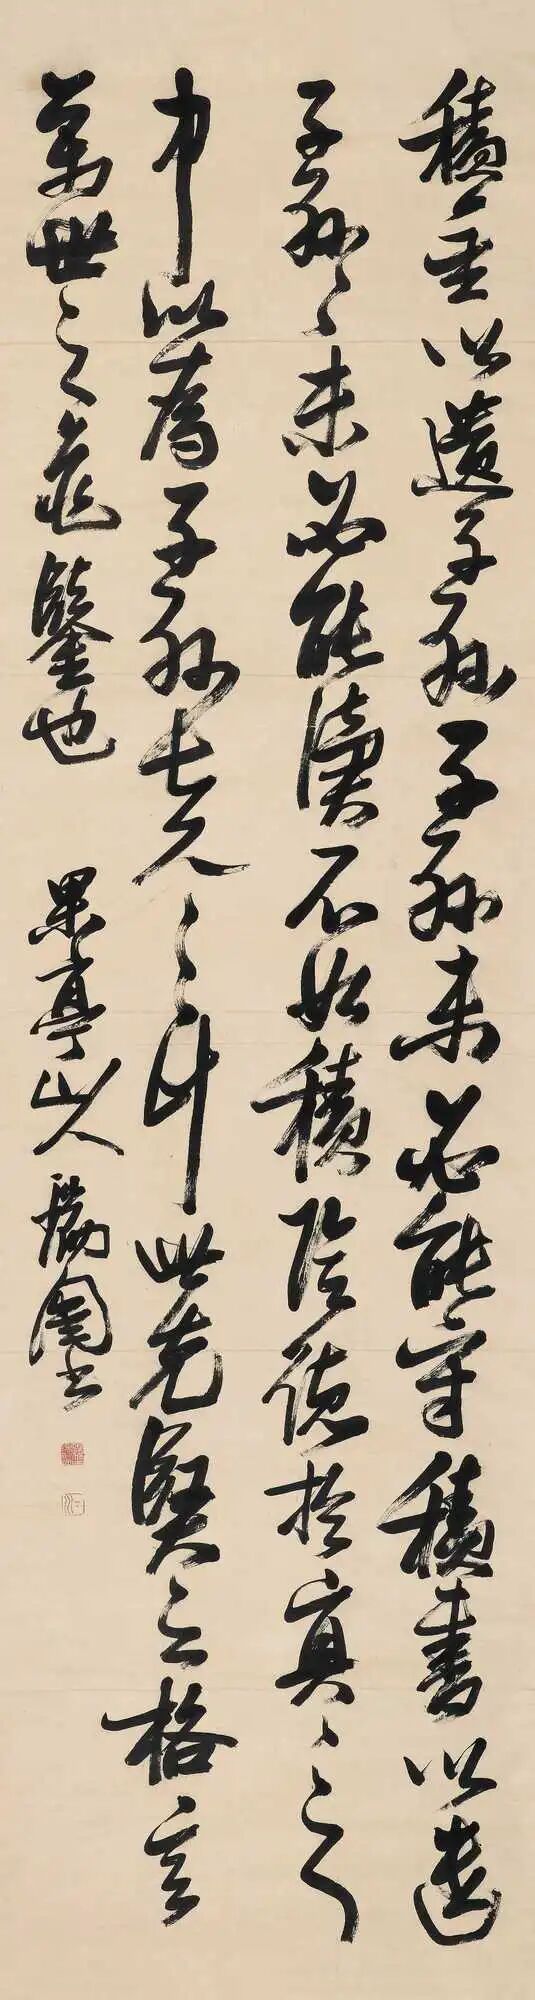 積金以遺子孫子孫未必能守積書以遺
子孫々未必能讀不如積陰德於冥々之
中以為子孫長久之計此先賢之格言
萬世之龜鑒也 果亭山人瀧圖書